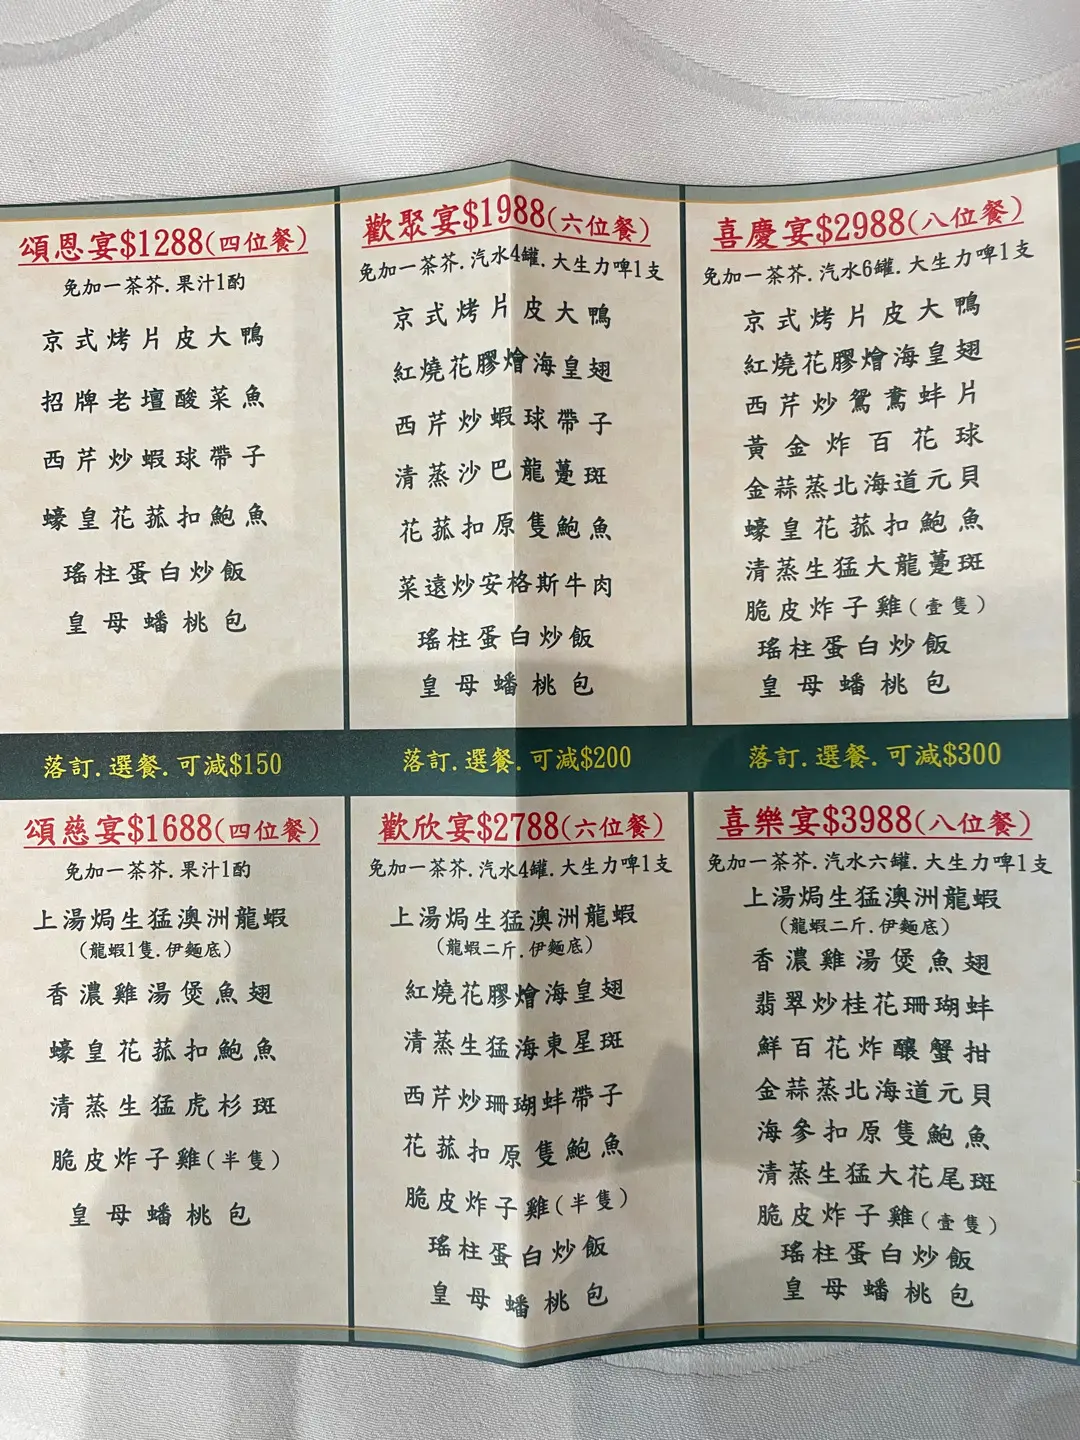 頌恩宴$1288(四位餐)
免加一茶芥.果汁1酌
京式烤片皮大鴨
招牌老壇酸菜魚
西芹炒蝦球帶子
蠔皇花菰扣鮑魚
瑤柱蛋白炒飯
皇母蟠桃包
歡聚宴$1988(六位餐)
免加一茶芥.汽水4罐.大生力啤1支
京式烤片皮大鴨
紅燒花膠燴海皇翅
西芹炒蝦球帶子
清蒸沙巴龍躉斑
花菰扣原隻鮑魚
菜遠炒安格斯牛肉
瑤柱蛋白炒飯
皇母蟠桃包
喜慶宴$2988(八位餐)
免加一茶芥.汽水6罐.大生力啤1支
京式烤片皮大鴨
紅燒花膠燴海皇翅
西芹炒鴛鴦蚌片
黃金炸百花球
金蒜蒸北海道元貝
蠔皇花菰扣鮑魚
清蒸生猛大龍躉斑
脆皮炸子雞(壹隻)
瑤柱蛋白炒飯
皇母蟠桃包
落訂.選餐.可減$150
落訂.選餐.可減$200
落訂.選餐.可減$300
頌慈宴$1688(四位餐)
免加一茶芥.果汁1酌
上湯焗生猛澳洲龍蝦
(龍蝦1隻.伊麵底)
香濃雞湯煲魚翅
蠔皇花菰扣鮑魚
清蒸生猛虎杉斑
脆皮炸子雞(半隻)
皇母蟠桃包
歡欣宴$2788(六位餐)
免加一茶芥.汽水4罐.大生力啤1支
上湯焗生猛澳洲龍蝦
(龍蝦二斤.伊麵底)
紅燒花膠燴海皇翅
清蒸生猛海東星斑
西芹炒珊瑚蚌帶子
花菰扣原隻鮑魚
脆皮炸子雞(半隻)
瑤柱蛋白炒飯
皇母蟠桃包
喜樂宴$3988(八位餐)
免加一茶芥.汽水六罐.大生力啤1支
上湯焗生猛澳洲龍蝦
(龍蝦二斤.伊麵底)
香濃雞湯煲魚翅
翡翠炒桂花珊瑚蚌
鮮百花炸釀蟹拑
金蒜蒸北海道元貝
海參扣原隻鮑魚
清蒸生猛大花尾斑
脆皮炸子雞(壹隻)
瑤柱蛋白炒飯
皇母蟠桃包